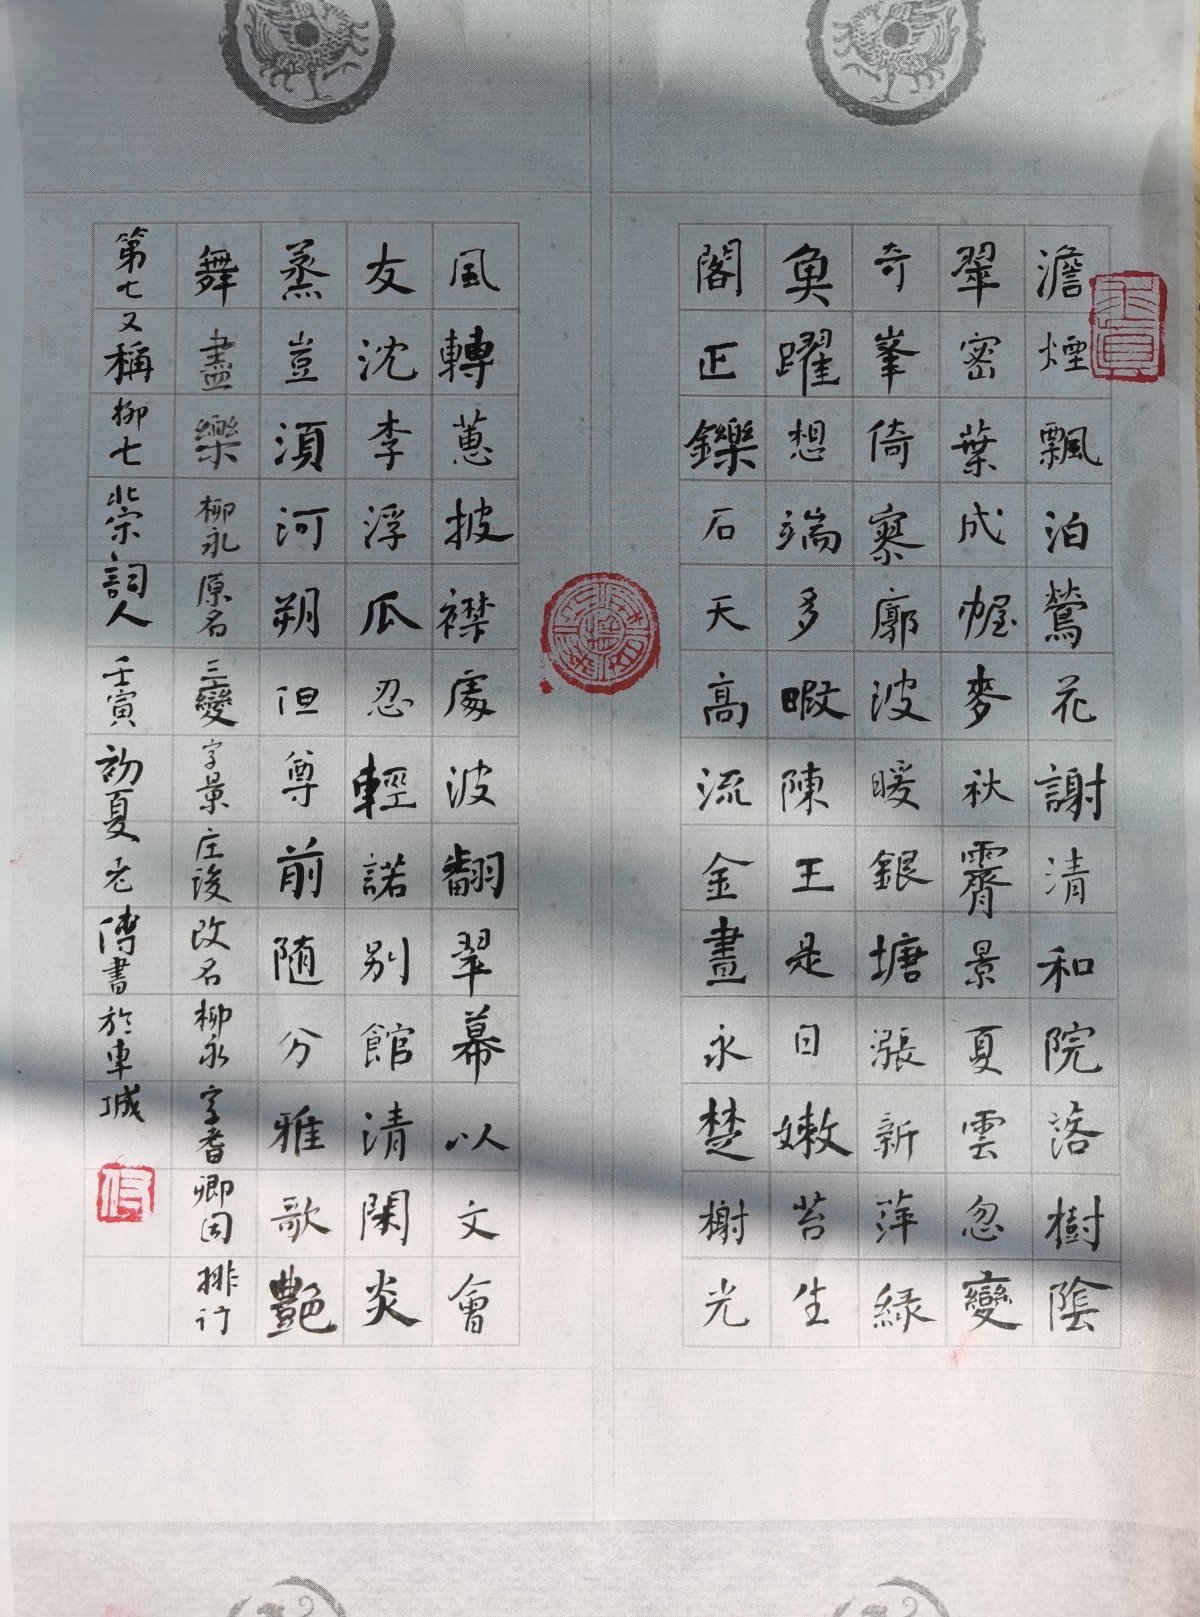 澹煙飄泊鶯花謝清和院落樹陰
翠密葉成幄麥秋霽景夏雲忽變
奇峯倚寥廓波暖銀塘漲新萍緑
魚躍想端多暇陳王是日嫩苔生
閣正鑠石天高流金晝永楚榭光
風轉蕙披襟處波翻翠幕以文會
友沈李浮瓜忍輕諾别館清閑炎
蒸豈須河朔但尊前随分雅歌艷
舞盡樂柳永原名三變字景庄後改名柳永字耆卿因排行
第七又稱柳七北宋詞人壬寅初夏老傅書於車城